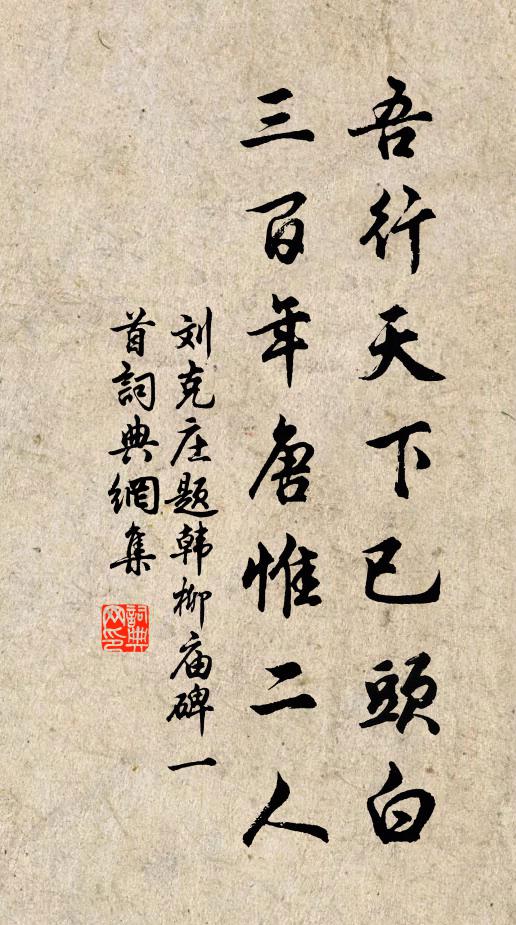 吾行天下已頭白
三百年唐惟二人
刘克庄题韩柳庙碑一
首詞典網集
詞典
网印